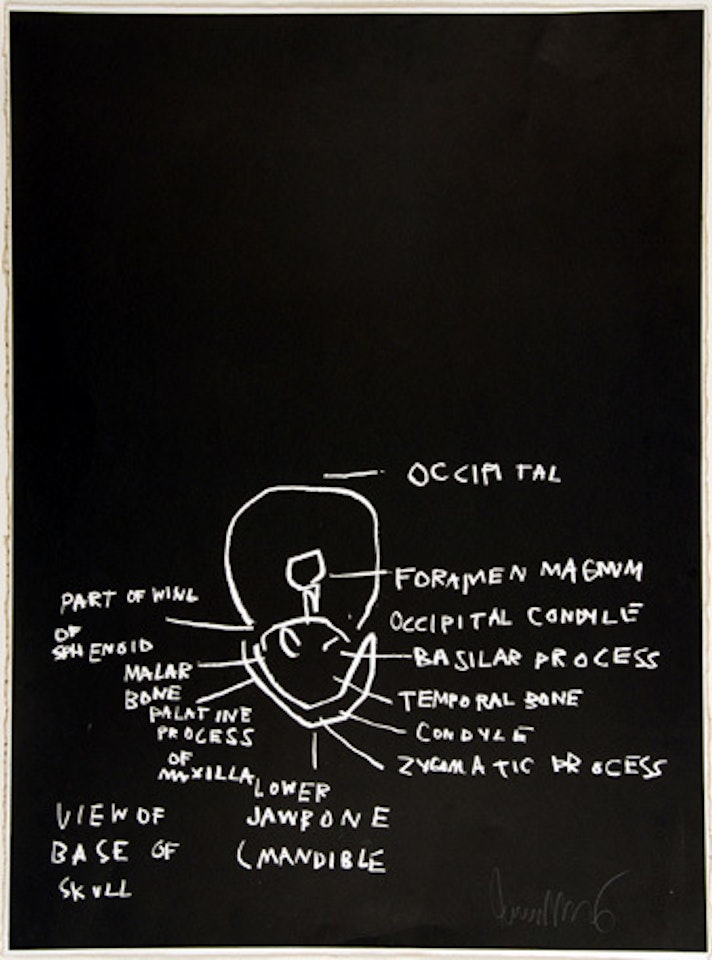 OCCIPITAL
FORAMEN MAGNUM
PART OF WING
OF
SPHENOID
OCCIPITAL CONDYLE
BASILAR PROCESS
MALAR
BONE
TEMPORAL BONE
PALATINE
PROCESS
OF
MAXILLA
CONDYLE
ZYGMATIC PROCESS
LOWER
JAWBONE
(MANDIBLE
VIEW OF
BASE OF
SKULL